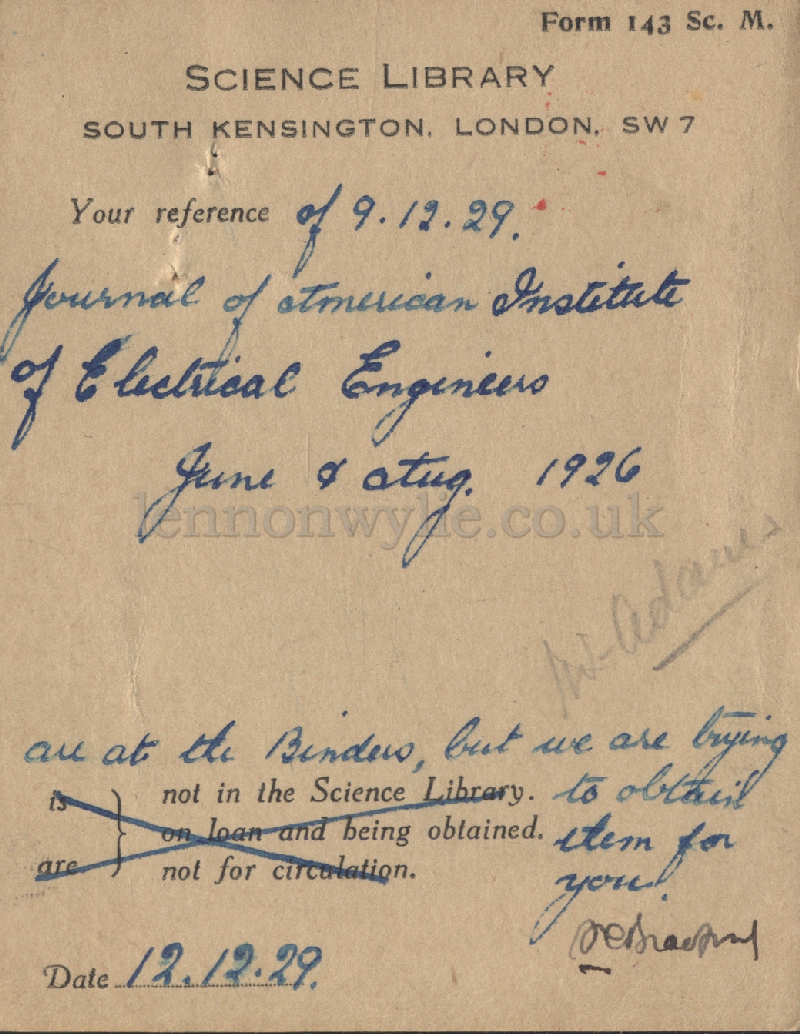 Form 143 Sc. M.
SCIENCE LIBRARY
SOUTH KENSINGTON, LONDON, SW 7
Your reference of 9.12.29.
Journal of American Institute
of Electrical Engineers
June & Aug. 1926
lennonwylie.co.uk
Mr Adams
are at the Binders, but we are trying
is not in the Science Library. to obtain
on loan and being obtained. them for
are not for circulation. you.
Date 12.12.29.